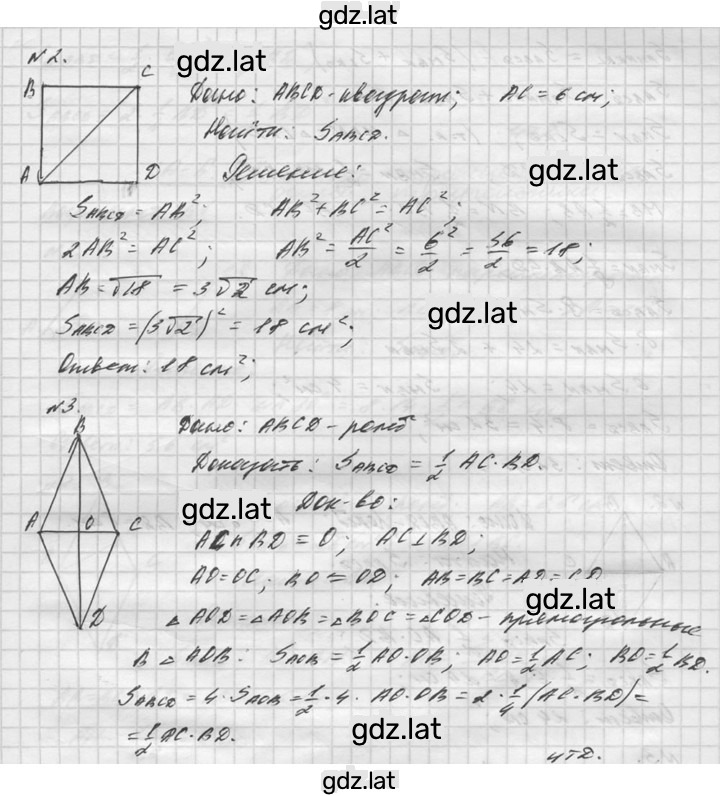 gdz.lat
№2.
gdz.lat
B
C
A
D
Дано: ABCD - квадрат; AC = 6 см;
Найти: S_ABCD.
gdz.lat
Решение:
S_ABCD = AB²; AB² + BC² = AC²;
2AB² = AC²; AB² = AC²/2 = 6²/2 = 36/2 = 18;
AB = √18 = 3√2 см;
gdz.lat
S_ABCD = (3√2)² = 18 см²;
Ответ: 18 см²;
№3.
B
A
O
C
D
Дано: ABCD - ромб
Доказать: S_ABCD = 1/2 AC · BD.
gdz.lat
Док-во:
AC ∩ BD = O; AC ⊥ BD;
AO = OC; BO = OD; AB = BC = AD = CD
gdz.lat
△AOD = △AOB = △BOC = △COD - прямоугольные
В △AOB: S_AOB = 1/2 AO · OB; AO = 1/2 AC; BO = 1/2 BD.
S_ABCD = 4 · S_AOB = 1/2 · 4 · AO · OB = 2 · 1/4 (AC · BD) =
= 1/2 AC · BD.
gdz.lat
чтд.
gdz.lat